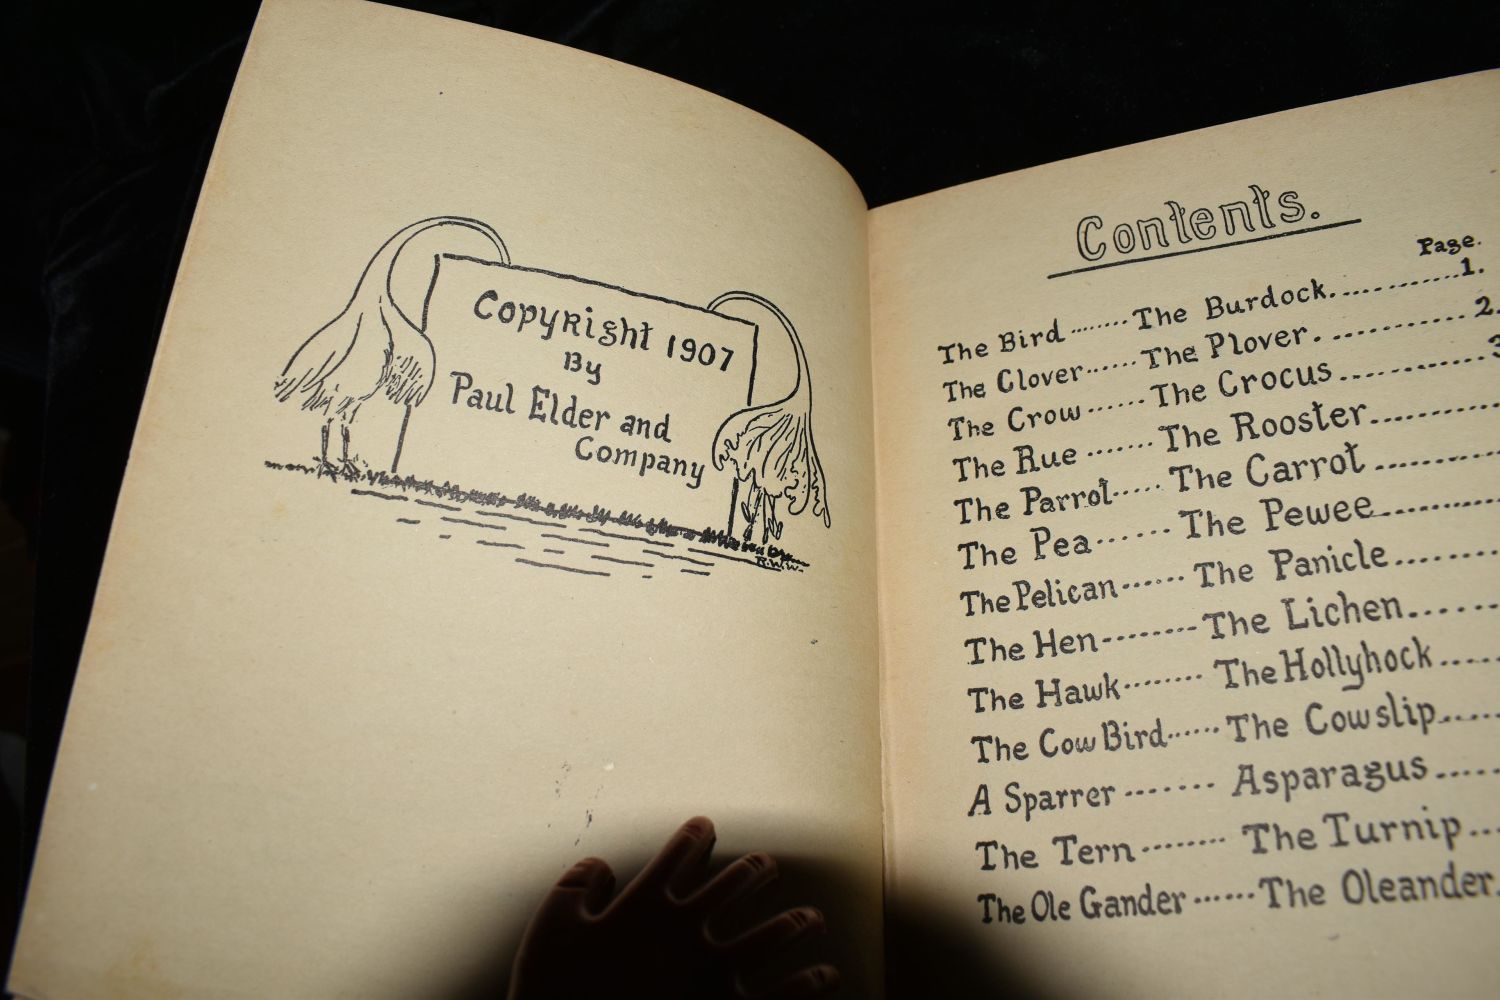 Copyright 1907
By
Paul Elder and
Company
R.W.W.
Contents.
Page.
The Bird........The Burdock............1.
The Clover......The Plover.............2.
The Crow.......The Crocus.............3
The Rue.......The Rooster.........
The Parrot.....The Carrot.........
The Pea.......The Pewee.........
The Pelican......The Panicle.......
The Hen........The Lichen......
The Hawk........The Hollyhock.....
The Cow Bird......The Cowslip.....
A Sparrer.......Asparagus.....
The Tern........The Turnip...
The Ole Gander......The Oleander.